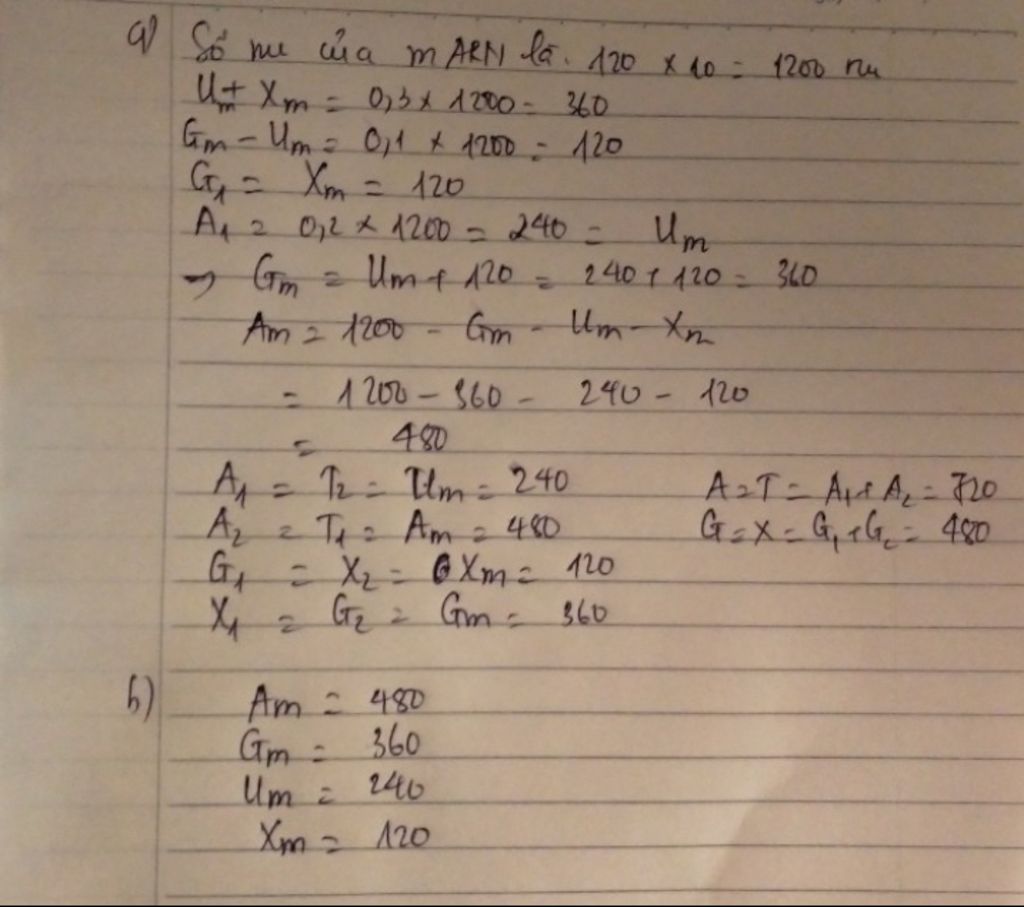 a) Số nu của mARN là. 120 x 10 = 1200 nu
Um + Xm = 0,3 x 1200 = 360
Gm - Um = 0,1 x 1200 = 120
G1 = Xm = 120
A1 = 0,2 x 1200 = 240 = Um
→ Gm = Um + 120 = 240 + 120 = 360
Am = 1200 - Gm - Um - Xm
= 1200 - 360 - 240 - 120
= 480
A1 = T2 = Um = 240 A=T = A1+A2 = 720
A2 = T1 = Am = 480 G=X = G1+G2 = 480
G1 = X2 = Xm = 120
X1 = G2 = Gm = 360
b) Am = 480
Gm = 360
Um = 240
Xm = 120